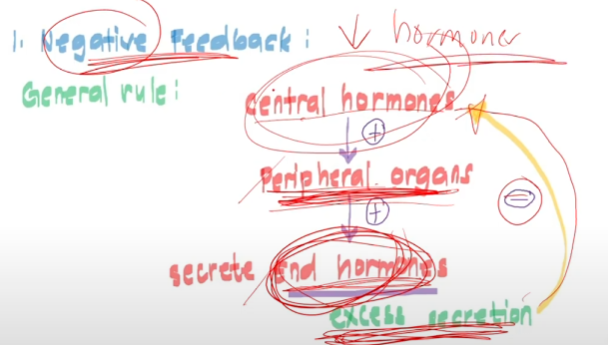 1. Negative Feedback:
↓ hormones
General rule:
central hormones
↓ +
Peripheral organs
↓ +
secrete end hormones
excess secretion
=